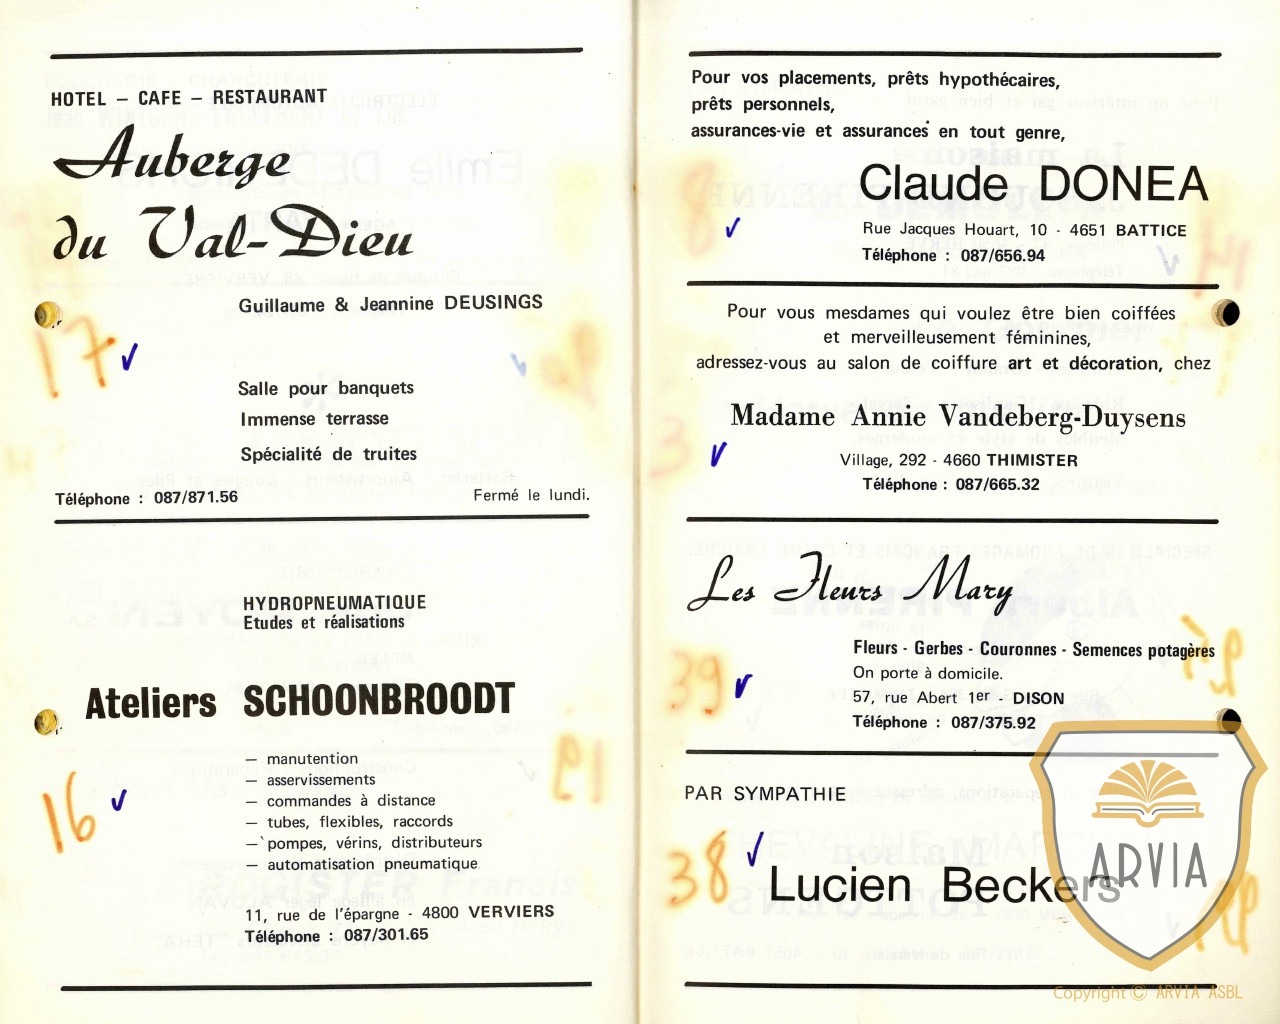 HOTEL – CAFE – RESTAURANT
Auberge
du Val-Dieu
Guillaume & Jeannine DEUSINGS
17
Salle pour banquets
Immense terrasse
Spécialité de truites
Téléphone : 087/871.56
Fermé le lundi.
HYDROPNEUMATIQUE
Etudes et réalisations
Ateliers SCHOONBROODT
— manutention
— asservissements
— commandes à distance
— tubes, flexibles, raccords
— pompes, vérins, distributeurs
— automatisation pneumatique
16
11, rue de l'épargne - 4800 VERVIERS
Téléphone : 087/301.65
Pour vos placements, prêts hypothécaires,
prêts personnels,
assurances-vie et assurances en tout genre,
Claude DONEA
Rue Jacques Houart, 10 - 4651 BATTICE
Téléphone : 087/656.94
Pour vous mesdames qui voulez être bien coiffées
et merveilleusement féminines,
adressez-vous au salon de coiffure art et décoration, chez
Madame Annie Vandeberg-Duysens
Village, 292 - 4660 THIMISTER
Téléphone : 087/665.32
Les Fleurs Mary
Fleurs - Gerbes - Couronnes - Semences potagères
On porte à domicile.
57, rue Abert 1er - DISON
Téléphone : 087/375.92
39
PAR SYMPATHIE
38
Lucien Beckers
ARVIA
Copyright © ARVIA ASBL